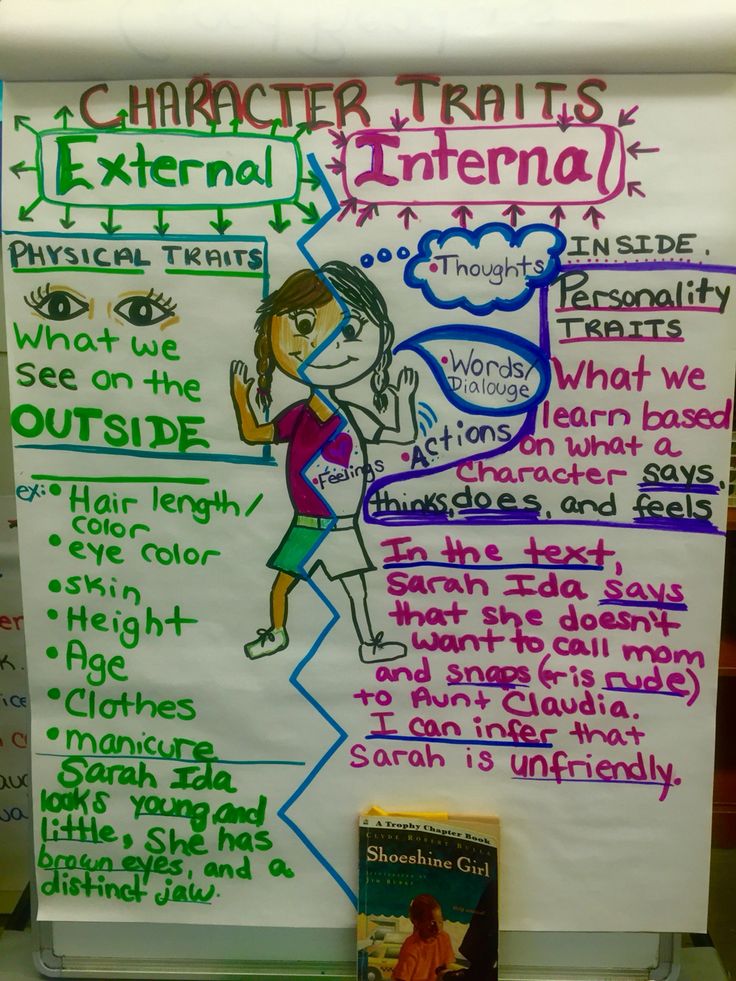 CHARACTER TRAITS
External
PHYSICAL TRAITS
What we
SEE on the
OUTSIDE
ex:
• Hair length/
color
• eye color
• skin
• Height
• Age
• Clothes
• manicure
Sarah Ida
looks young and
little, She has
brown eyes, and a
distinct jaw.
Internal
• Thoughts
INSIDE.
• Words/
Dialouge
• Actions
• Feelings
Personality
TRAITS
What we
learn based
on what a
Character says,
thinks, does, and feels
In the text,
Sarah Ida says
that she doesn't
want to call mom
and snaps (or is rude)
to Aunt Claudia.
I can infer that
Sarah is unfriendly.
A Trophy Chapter Book
CLYDE ROBERT BULLA
Shoeshine Girl
ILLUSTRATED BY